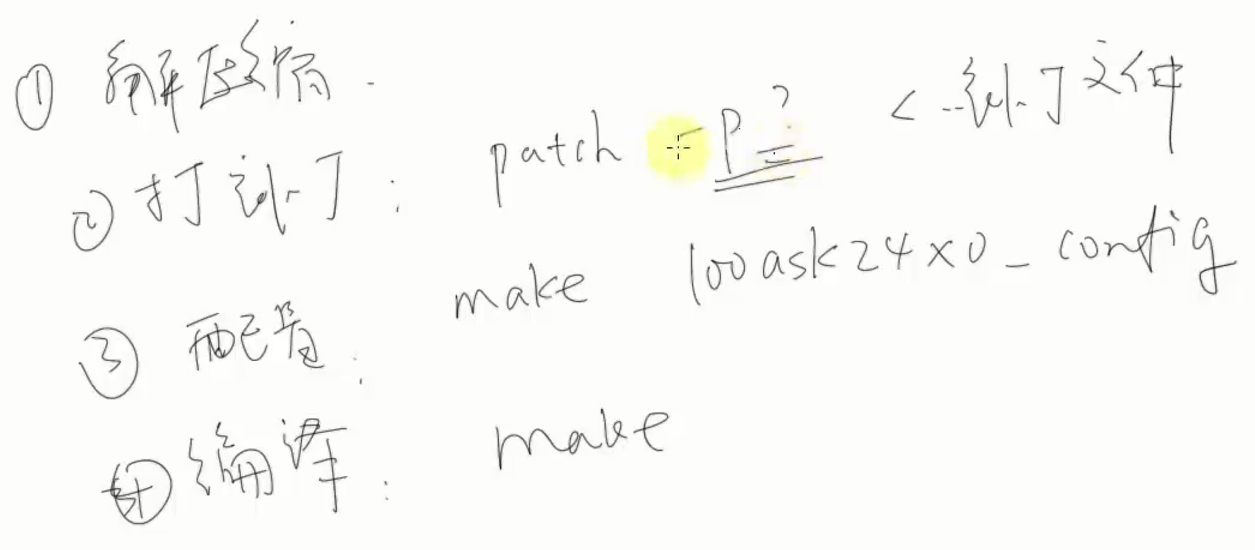 ① 解压缩.
② 打补丁: patch -P? < ..补丁文件
③ 配置: make 100ask24x0_config
④ 编译: make